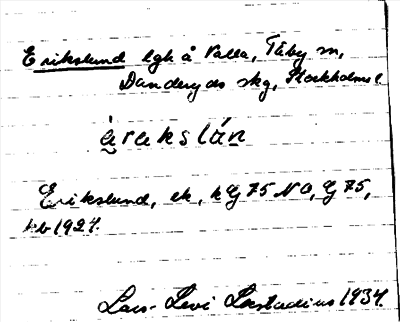 Erikslund lgh å Valla, Täby sn,
Danderyds skg, Stockholms l.
èrakslán
Erikslund, ek, k G 75 NO, G 75,
hb 1924.
Lars-Levi Læstadius 1934.